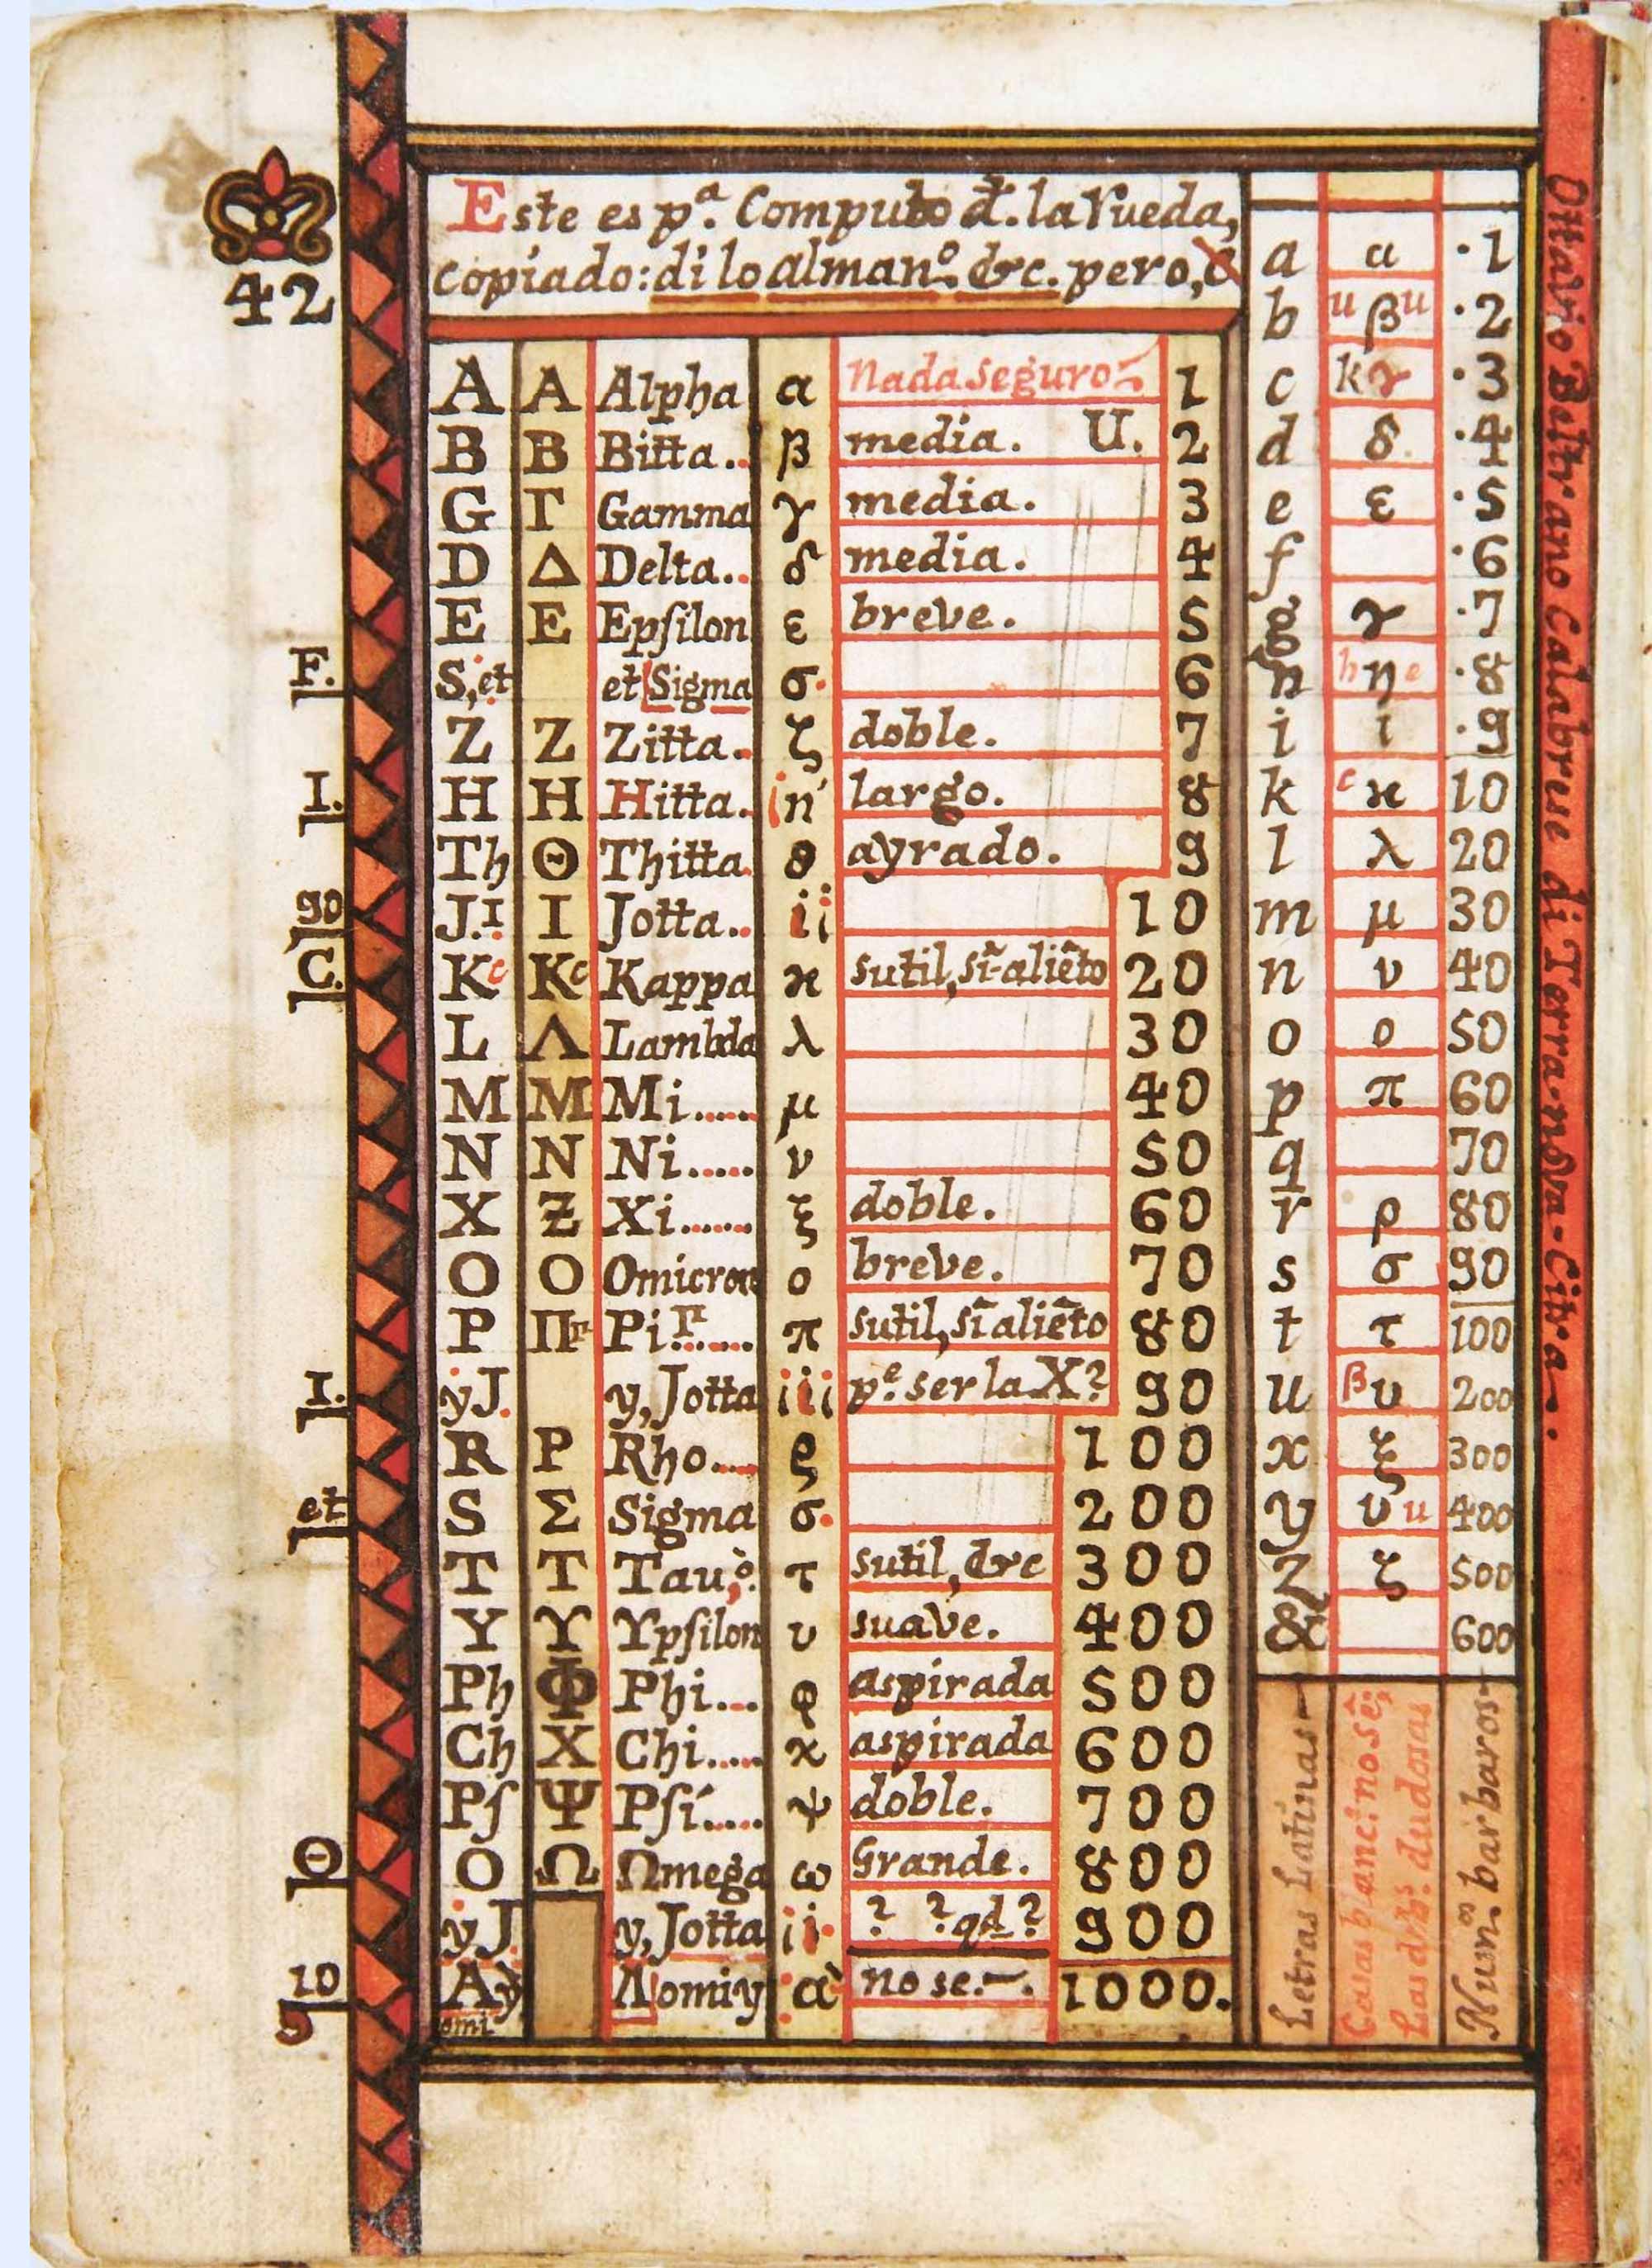 42
Este es pª. Computo đ. la rueda,
copiado: di lo alman.º &c. pero,
A A Alpha α Nada seguro 1
B B Bitta.. β media. U. 2
G Γ Gamma γ media. 3
D Δ Delta.. δ media. 4
E E Epſilon ε breve. 5
F. S,et et Sigma σ. 6
Z Z Zitta. ζ doble. 7
I. H H Hitta. i n' largo. 8
Th Θ Thitta. θ ayrado. 9
90 J.I I Jotta.. ii 10
C. Kc Kc Kappa ϰ sutil, sĩ-aliẽto 20
L Λ Lambda λ 30
M M Mi..... μ 40
N N Ni..... ν 50
X Ƶ Xi...... ξ doble. 60
O O Omicron o breve. 70
P Π Pi...... π sutil, sĩ aliẽto 80
I. yJ. y, Jotta iii p.e ser la X? 90
R P Rho.... ρ 100
et S Σ Sigma σ. 200
T T Tau,o. τ sutil, &c 300
Y ϒ ϒpſilon υ suave. 400
Ph Φ Phi... φ aspirada 500
Ch X Chi..... ϰ aspirada 600
Pſ Ψ Pſi..... ψ doble. 700
Θ O Ω Ωmega ω Grande. 800
yJ. y, Jotta ii. ? ? qd? 900
10 Aÿ Λomiy .α no se.-. 1000.
omi
a α .1
b u β u .2
c k γ .3
d δ. .4
e ε .5
f .6
g γ .7
h h η e .8
i ι .9
k c ϰ 10
l λ 20
m μ 30
n ν 40
o o 50
p π 60
q 70
r ρ 80
s σ 90
t τ 100
u β υ 200
x ξ 300
y υ u 400
z ζ 500
& 600
Letras Latinas-
Casas blanci no sê;
Las d/bs. dudosas
Num.os barbaros-
Ottavio Beltrano Calabrese di Terra-nova-Citra-.